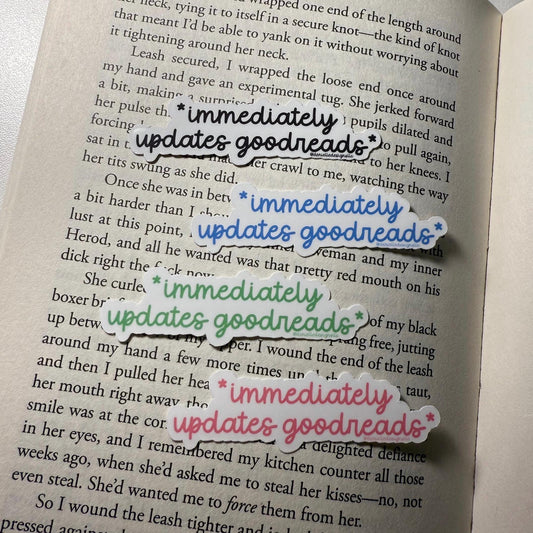 wrapped one end of the length around
her neck, tying it to itself in a secure knot—the kind of knot
that meant I'd be able to yank on it without worrying about
it tightening around her neck.
Leash secured, I wrapped the loose end once around
my hand and gave an experimental tug. She jerked forward
a bit, making a surprised pupils dilated and
her pulse
*immediately
updates goodreads*
forcing to pull again,
sat in to her knees. I
her crawl to me, watching the way
her tits swung as she did.
Once she was in
a bit harder than I
*immediately
updates goodreads*
lust at this point, and my inner
Herod, and all he wanted was that pretty red mouth on his
dick right the fuck now.
She
*immediately
updates goodreads*
boxer of my black
up free, jutting
I wound the end of the leash
around my hand a few more times taut,
and then I pulled her
*immediately
updates goodreads*
her mouth right away,
smile was at the delighted defiance
in her eyes, and I remembered my kitchen counter all those
weeks ago, when she'd asked me to steal her kisses—no, not
even steal. She'd wanted me to force them from her.
So I wound the leash tighter and
pressed against